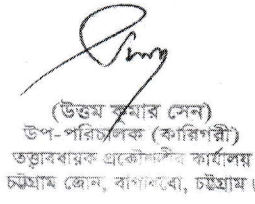 (উত্তম কুমার সেন)
উপ-পরিচালক (কারিগরী)
তত্ত্বাবধায়ক প্রকৌশলীর কার্যালয়
চট্টগ্রাম জোন, বাপাউবো, চট্টগ্রাম।